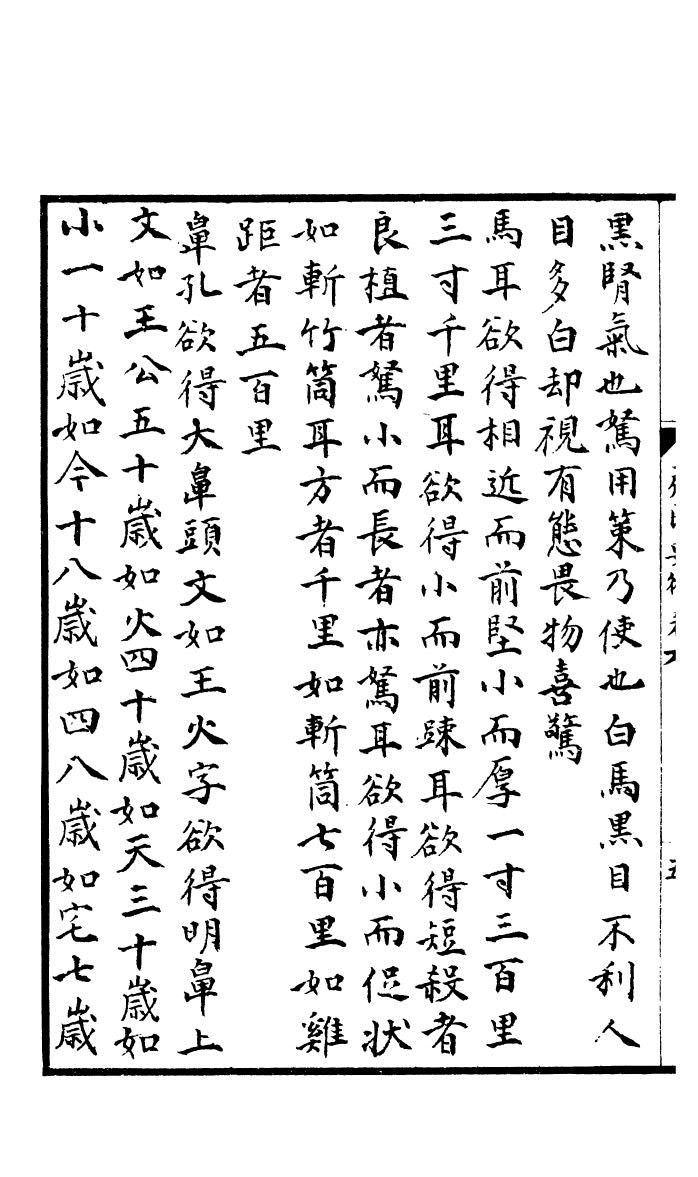 黒腎氣也駑用策乃使也白馬黒目不利人
目多白却視有態畏物喜驚
馬耳欲得相近而前竪小而厚一寸三百里
三寸千里耳欲得小而前竦耳欲得短殺者
良植者駑小而長者亦駑耳欲得小而促状
如斬竹筒耳方者千里如斬筒七百里如雞
距者五百里
鼻孔欲得大鼻頭文如王火字欲得明鼻上
文如王公五十歳如火四十歳如天三十歳如
小一十歳如今十八歳如四八歳如宅七歳